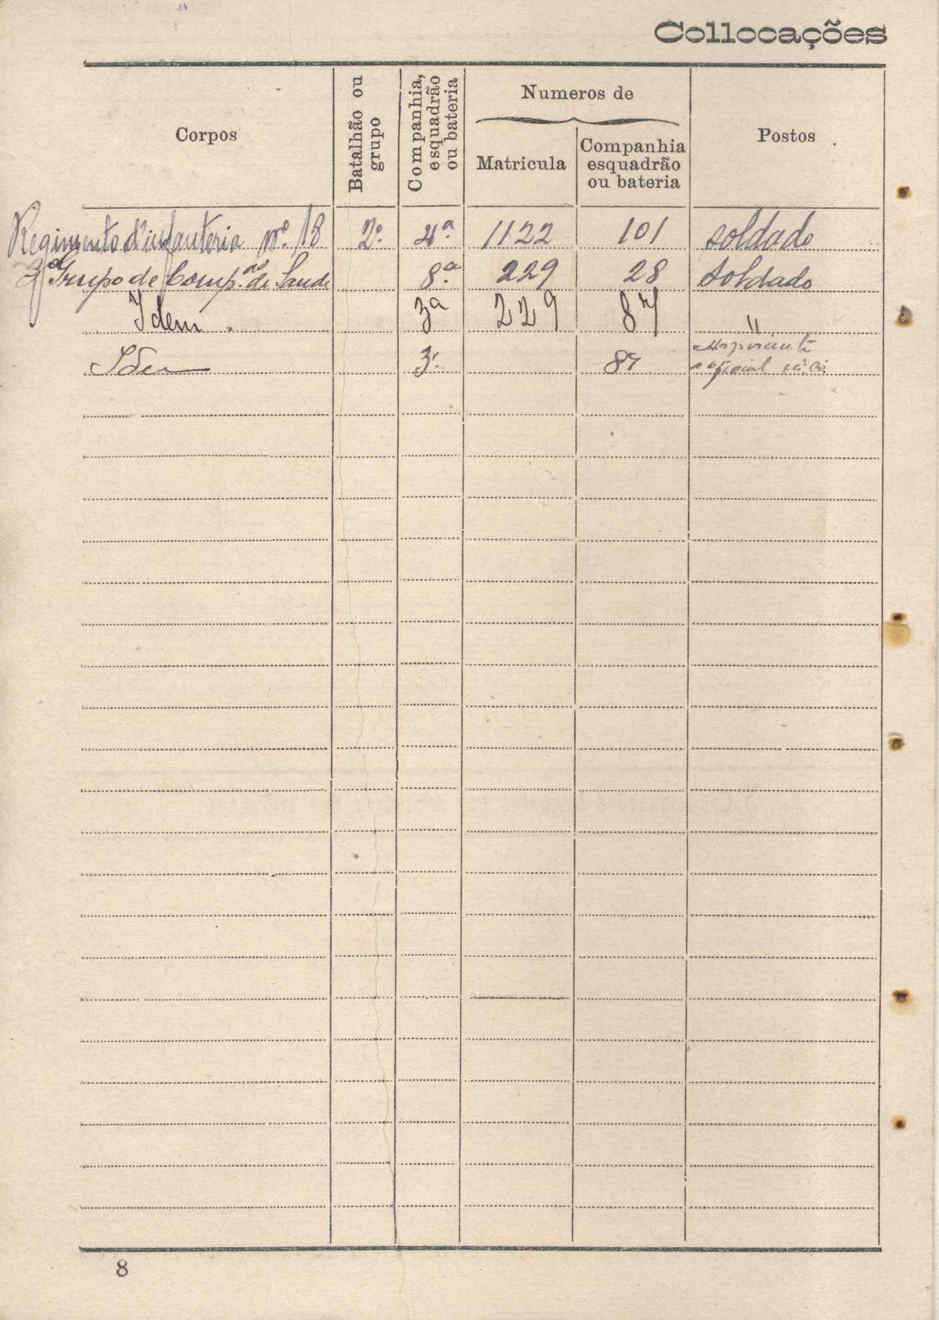 Collocações
Corpos
Batalhão ou
grupo
Companhia,
esquadrão
ou bateria
Numeros de
Matricula
Companhia
esquadrão
ou bateria
Postos
Regimento d'infanteria nº 18 2º 4ª 1122 101 soldado
Grupo de Comp.as de Saude 8ª 229 28 Soldado
Idem . 3ª 229 87 "
Idem 3ª 87
8